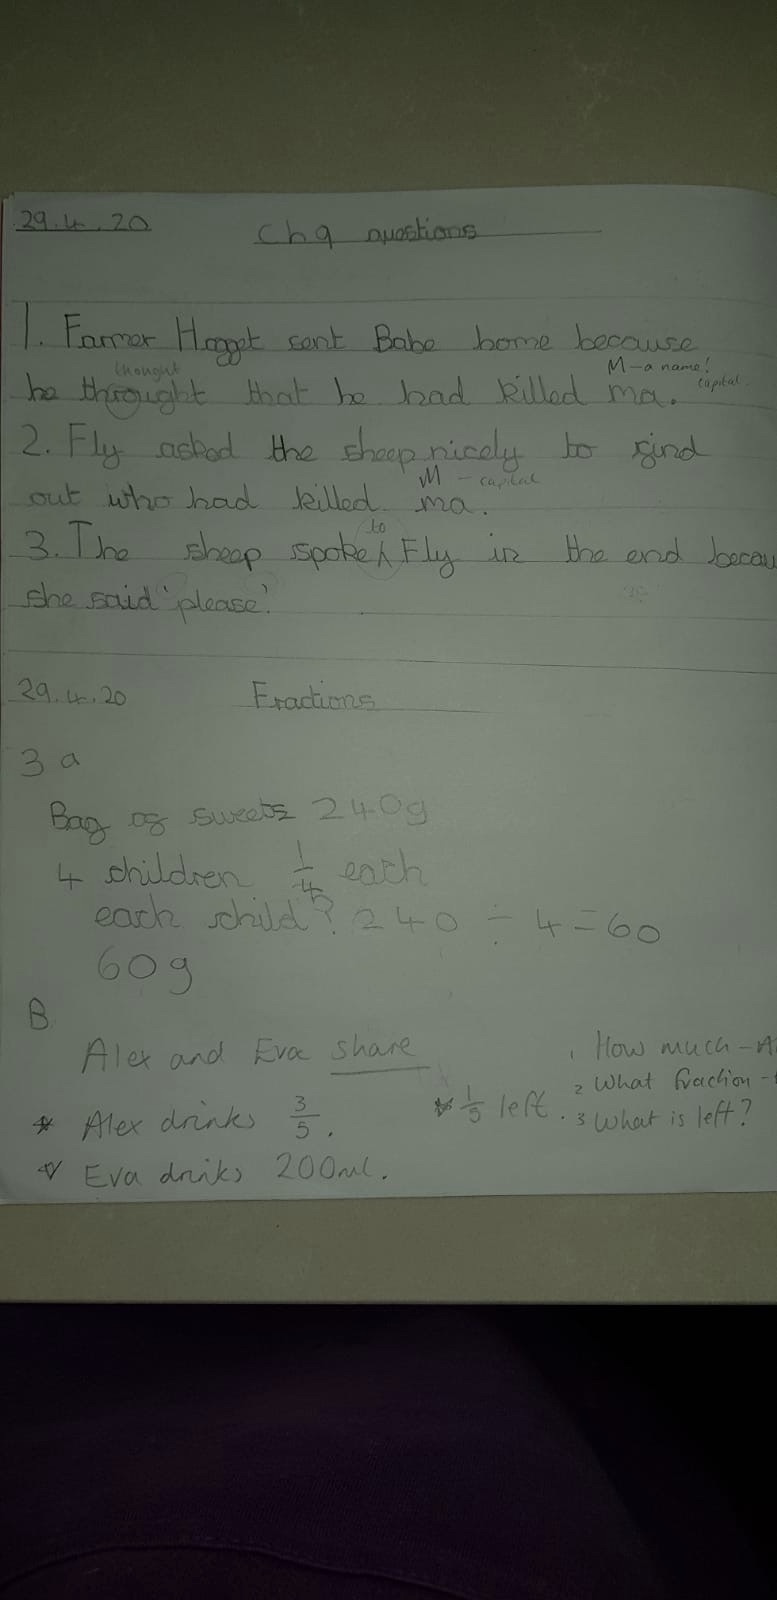 29.4.20 Ch9 questions
1. Farmer Hogget sent Babe home because
thought M-a name! capital
he throught that he had killed ma.
2. Fly asked the sheep nicely to find
M - capital
out who had killed ma.
to
3. The sheep spoke ^ Fly in the end becau
she said 'please'.
29.4.20 Fractions
3 a
Bag of sweets 240g
4 children 1/4 each
each schild? 240 ÷ 4 = 60
60g
B
Alex and Eva share 1 How much - A
* Alex drinks 3/5. * 1/5 left. 2 What fraction -
3 What is left?
* Eva drinks 200ml.